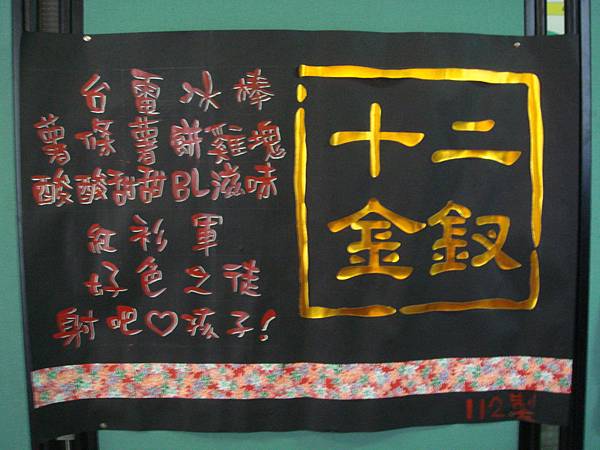 台雷冰棒
薯條薯餅雞塊
酸酸甜甜BL滋味
紅衫軍
好色之徒
射吧♡孩子!
十二
金釵
112製